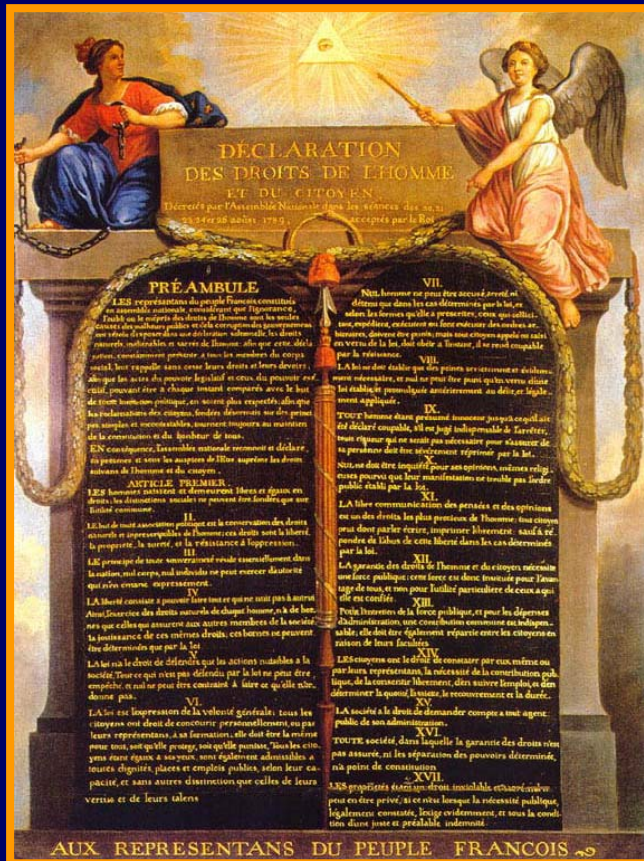 DÉCLARATION
DES DROITS DE L'HOMME
ET DU CITOYEN,
Décretés par l'Assemblée Nationale dans les séances des 20, 21
23, 24 et 26 août 1789, acceptés par le Roi
PRÉAMBULE
LES représentans du peuple Francois constitués
en assemblée nationale, considérant que l'ignorance,
l'oubli ou le mépris des droits de l'homme sont les seules
causes des malheurs publics et de la corruption des gouvernemens
ont résolu d'exposer dans une déclaration solemnelle, les droits
naturels, inaliénables et sacrés de l'homme; afin que cette décla
ration, constamment présente a tous les membres du corps
social, leur rappelle sans cesse leurs droits et leurs devoirs;
afin que les actes du pouvoir législatif et ceux du pouvoir exé
cutif, pouvant être a chaque instant comparés avec le but
de toute institution politique, en soient plus respectés; afin que
les reclamations des citoyens, fondées désormais sur des princi
pes simples et incontestables, tournent toujours au maintien
de la constitution et du bonheur de tous.
EN conséquence, l'assemblée nationale reconnoit et déclare,
en présence et sous les auspices de l'Etre suprême les droits
suivans de l'homme et du citoyen.
ARTICLE PREMIER.
LES hommes naissent et demeurent libres et égaux en
droits; les distinctions sociales ne peuvent être fondées que sur
l'utilité commune.
II.
LE but de toute association politique est la conservation des droits
naturels et imprescriptibles de l'homme; ces droits sont la liberté,
la propriété, la sureté, et la résistance à l'oppression.
III.
LE principe de toute souveraineté réside essentiellement dans
la nation, nul corps, nul individu ne peut exercer d'autorité
qui n'en émane expressement.
IV.
LA liberté consiste a pouvoir faire tout ce qui ne nuit pas à autrui
Ainsi, l'exercice des droits naturels de chaque homme, n'a de bor-
nes que celles qui assurent aux autres membres de la société
la jouissance de ces mêmes droits; ces bornes ne peuvent
être déterminées que par la loi
V.
LA loi n'a le droit de défendre que les actions nuisibles a la
société. Tout ce qui n'est pas défendu par la loi ne peut être
empêché, et nul ne peut être contraint à faire ce qu'elle n'or-
donne pas.
VI.
LA loi est l'expression de la volonté générale; tous les
citoyens ont droit de concourir personnellement, ou par
leurs représentans, à sa formation; elle doit être la même
pour tous, soit qu'elle protege, soit qu'elle punisse. Tous les cito-
yens étant égaux à ses yeux, sont également admissibles a
toutes dignités, places et emplois publics, selon leur ca-
pacité, et sans autres distinction que celles de leurs
vertus et de leurs talens
VII.
NUL homme ne peut être accusé, arreté, ni
détenu que dans les cas déterminés par la loi, et
selon les formes qu'elle a prescrites, ceux qui sollici-
tent, expédient, exécutent ou font exécuter des ordres ar-
bitraires, doivent être punis; mais tout citoyen appelé ou saisi
en vertu de la loi, doit obéir a l'instant, il se rend coupable
par la résistance.
VIII.
LA loi ne doit établir que des peines strictement et évidem-
ment nécessaire, et nul ne peut être puni qu'en vertu d'une
loi établie et promulguée antérieurement au délit, et légale-
ment appliquée.
IX.
TOUT homme étant présumé innocent jusqu'à ce qu'il ait
été déclaré coupable, s'il est jugé indispensable de l'arrêter,
toute rigueur qui ne serait pas nécessaire pour s'assurer de
sa personne doit être sévèrement réprimée par la loi.
X.
NUL ne doit être inquiété pour ses opinions, mêmes religi-
euses pourvu que leur manifestation ne trouble pas l'ordre
public établi par la loi.
XI.
LA libre communication des pensées et des opinions
est un des droits les plus précieux de l'homme; tout citoyen
peut donc parler écrire, imprimer librement: sauf à ré-
pondre de l'abus de cette liberté dans les cas déterminés
par la loi.
XII.
LA garantie des droits de l'homme et du citoyen nécessite
une force publique; cette force est donc instituée pour l'avan-
tage de tous, et non pour l'utilité particuliere de ceux a qui
elle est confiée.
XIII.
Pour l'entretien de la force publique, et pour les dépenses
d'administration, une contribution commune est indispen-
sable; elle doit être également répartie entre les citoyens en
raison de leurs facultées
XIV.
LES citoyens ont le droit de constater par eux même ou
par leurs représentans, la nécessité de la contribution pub-
lique, de la consentir librement, d'en suivre l'emploi, et d'en
déterminer la quotité, l'assiette, le recouvrement et la durée.
XV.
LA société a le droit de demander compte a tout agent
public de son administration.
XVI.
TOUTE société, dans laquelle la garantie des droits n'est
pas assurée, ni les séparation des pouvoirs déterminée,
n'a point de constitution
XVII.
LES propriétés étant un droit inviolable et sacré, nul ne
peut en être privé, si ce n'est lorsque la nécessité publique,
légalement constatée, l'exige évidemment, et sous la condi-
tion d'une juste et préalable indemnité.
AUX REPRESENTANS DU PEUPLE FRANCOIS